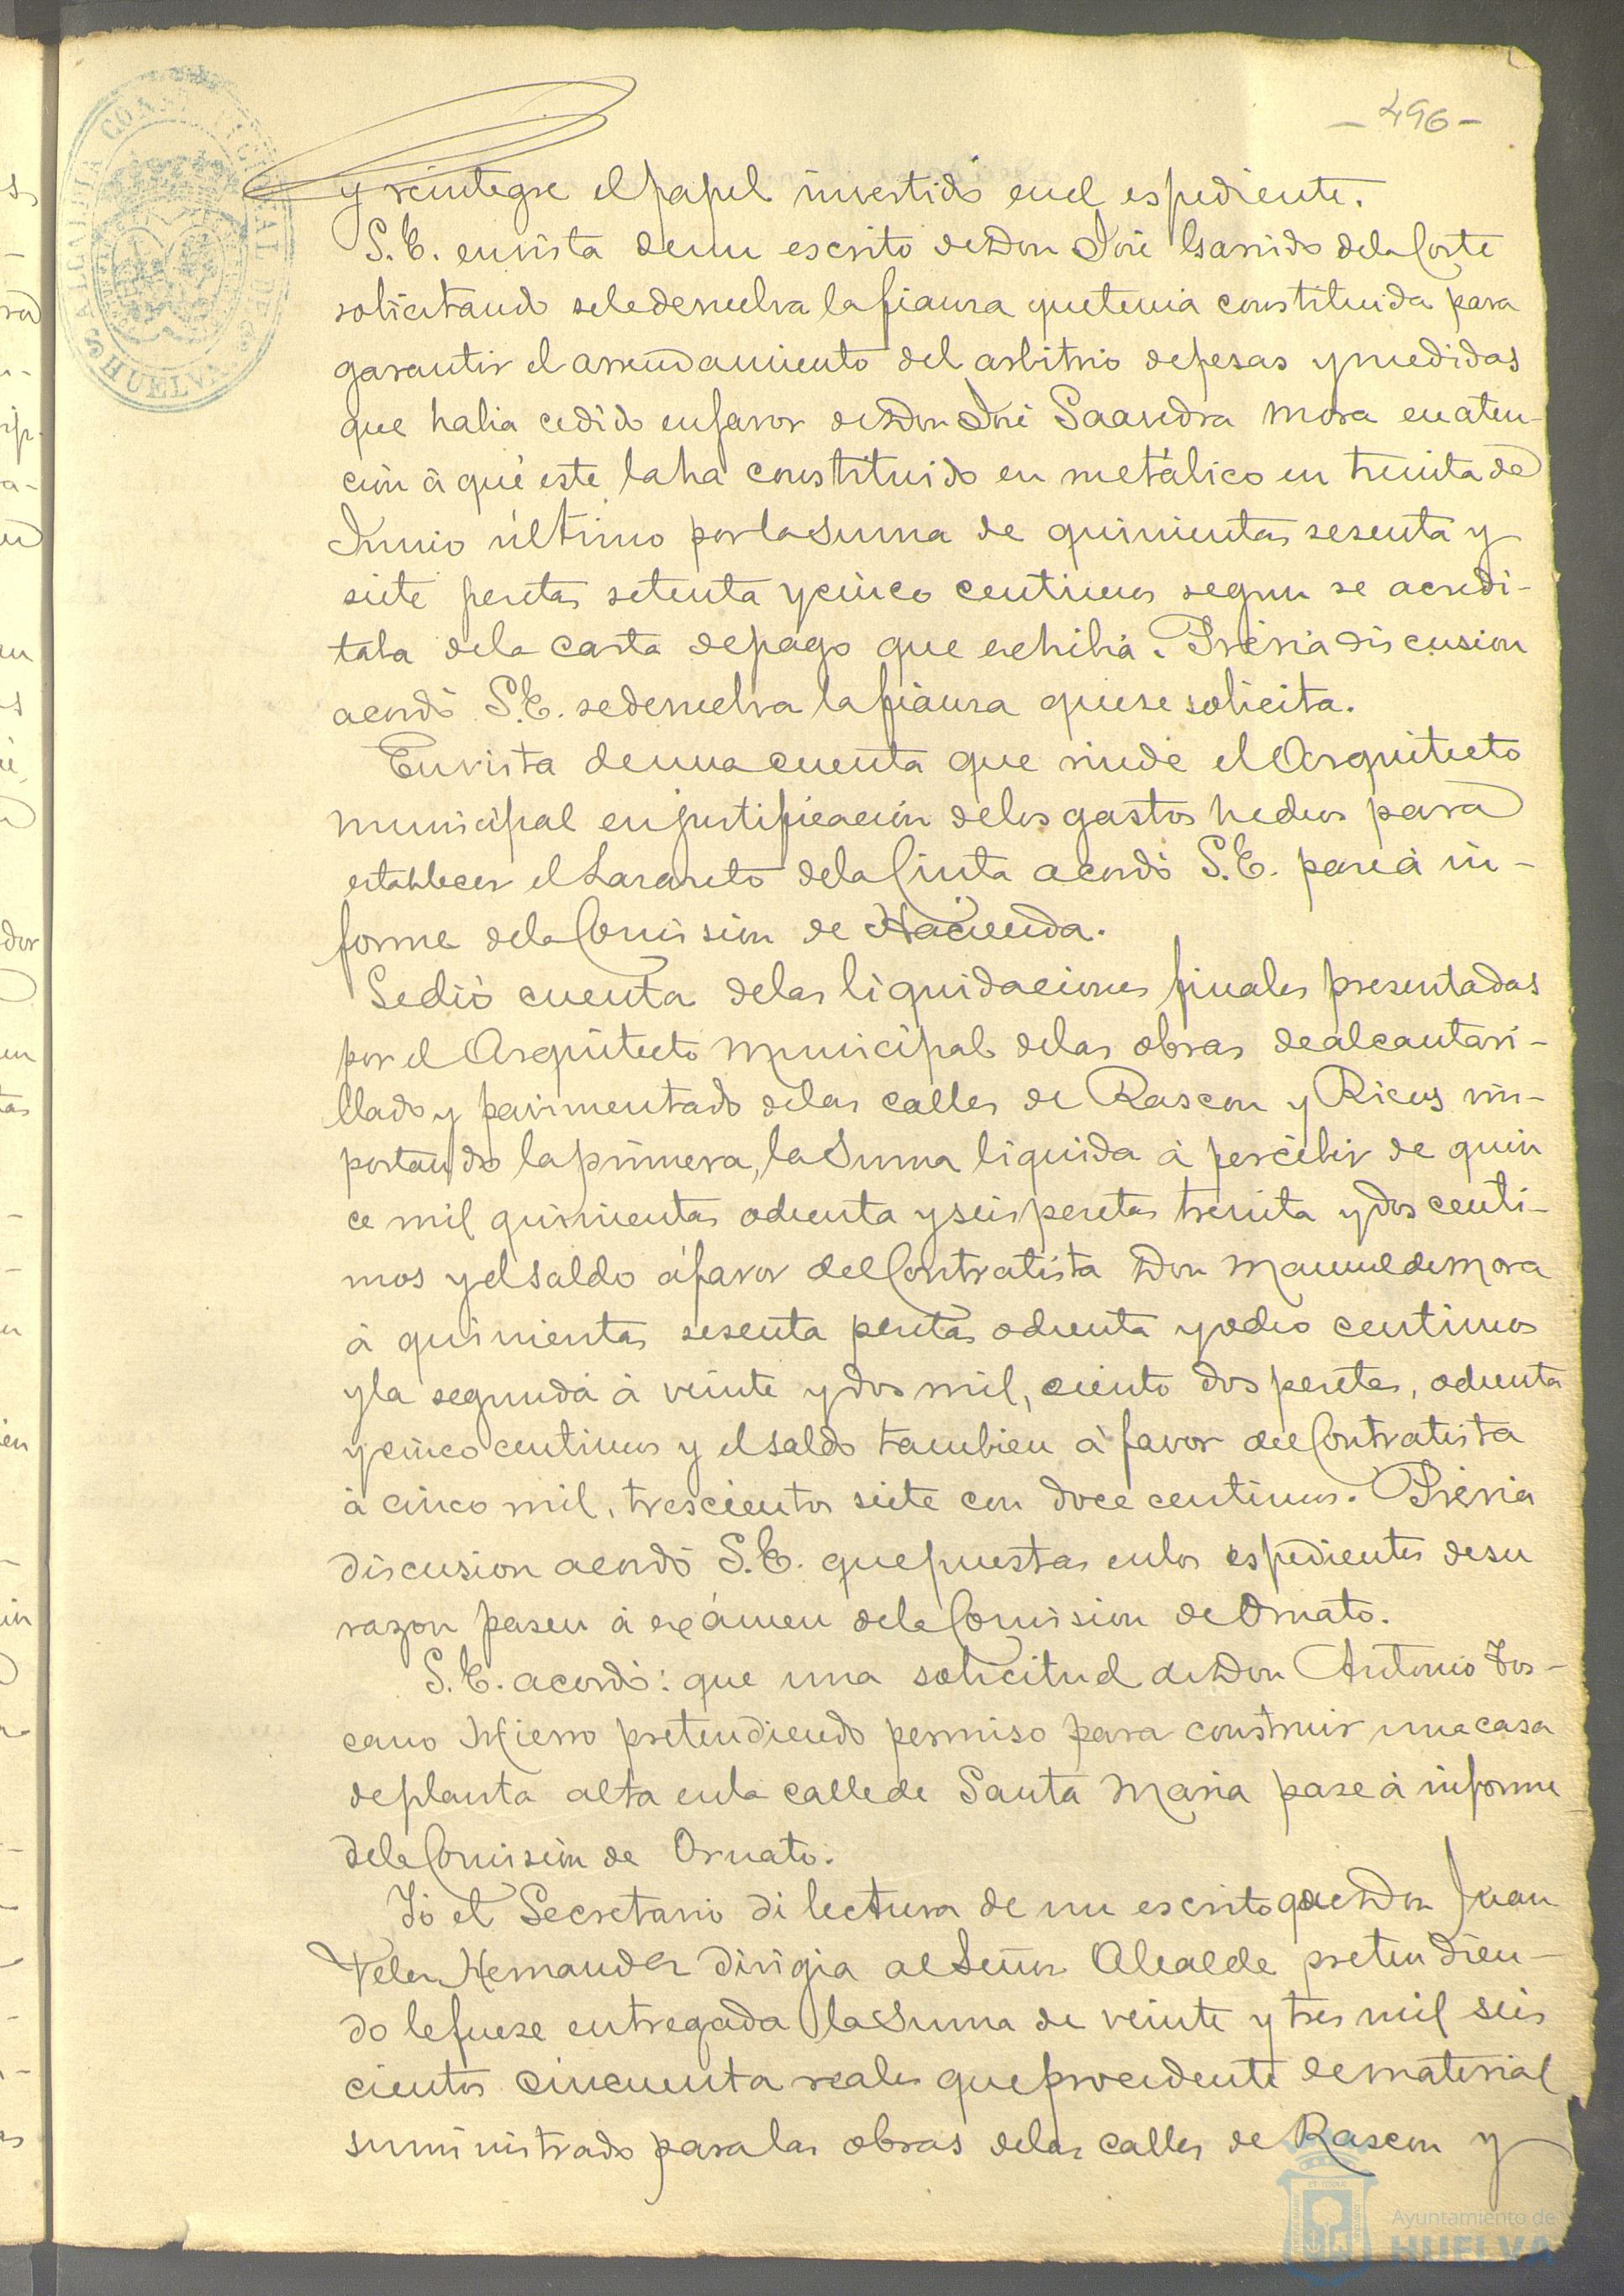 - 496 -
ALCALDIA CONSTITUCIONAL DE HUELVA
y reintegre el papel invertido en el espediente.
S. E. en vista de un escrito de Don José Garrido de la Corte
solicitando se le devuelva la fianza que tenia constituida para
garantir el arrendamiento del arbitrio de pesas y medidas
que habia cedido en favor de Don José Saavedra Mora en aten-
ción á qué este la ha constituido en metálico en treinta de
Junio último por la suma de quinientas sesenta y
siete pesetas setenta y cinco centimos segun se acredi-
taba de la carta de pago que exhibia. Prévia discusion
acordó S. E. se devuelva la fianza que se solicita.
En vista de una cuenta que rinde el Arquitecto
municipal en justificación de los gastos hechos para
establecer el Lazareto de la Cinta acordó S. E. pase á in-
forme de la Comisión de Hacienda.
Se dió cuenta de las liquidaciones finales presentadas
por el Arquitecto municipal de las obras de alcantari-
llado y pavimentado de las calles de Rascon y Ricos im-
portando la primera, la suma liquida á percibir de quin
ce mil quinientas ochenta y seis pesetas treinta y dos centi-
mos y el saldo á favor del Contratista Don Manuel de Mora
á quinientas sesenta pesetas ochenta y ocho centimos
y la segunda á veinte y dos mil, ciento dos pesetas, ochenta
y cinco centimos y el saldo tambien á favor del Contratista
á cinco mil, trescientos siete con doce centimos. Prévia
discusion acordó S. E. que puestas en los espedientes de su
razon pasen á exámen de la Comision de Ornato.
S. E. acordó: que una solicitud de Don Antonio Tos-
cano Hierro pretendiendo permiso para construir una casa
de planta alta en la calle de Santa Maria pase á informe
de la Comisión de Ornato.
Yó el Secretario di lectura de un escrito que Don Juan
Velez Hernandez dirigia al Señor Alcalde pretendien-
do le fuese entregada la suma de veinte y tres mil seis
cientos cincuenta reales que procedente de material
suministrado para las obras de las calles de Rascon y
Ayuntamiento de
HUELVA